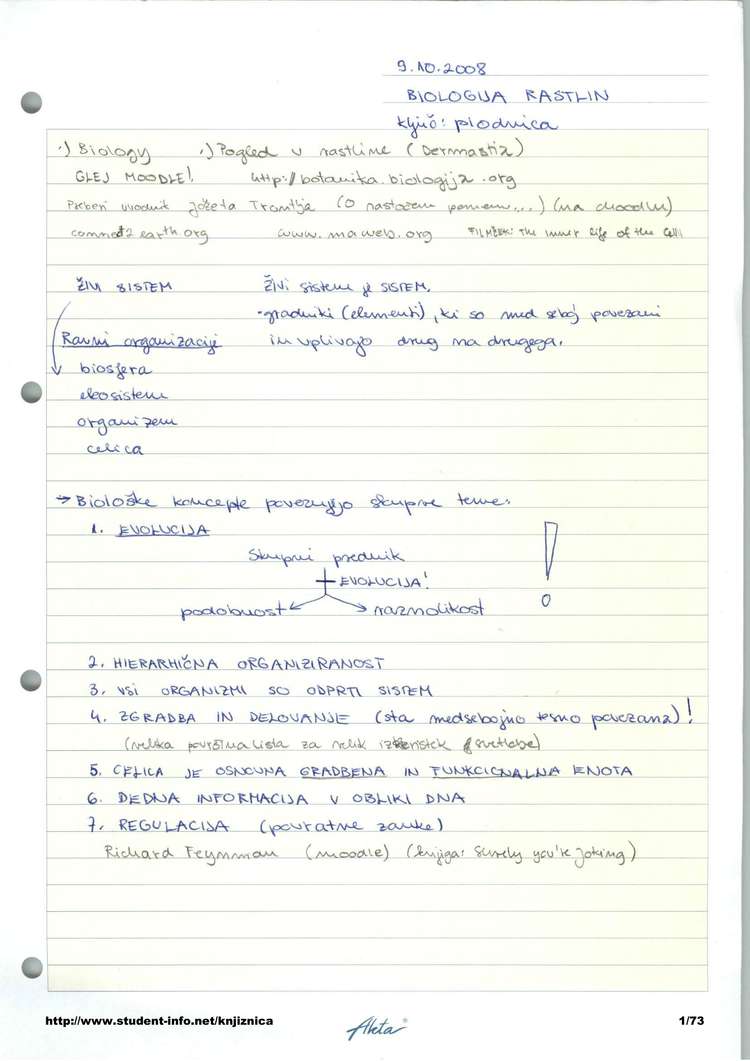 9.10.2008
BIOLOGIJA RASTLIN
ključ: plodnica
·) Biology ·) Pogled v rastline (Dermastia)
GLEJ MOODLE! http://botanika.biologija.org
Preberi uvodnik Jožeta Trontlja (O nastočem pomenu...) (na moodlu)
connect2earth.org www.maweb.org FILMČEK: The inner life of the Cell
ŽIVI SISTEM Živi sistem je SISTEM.
-gradniki (elementi), ki so med seboj povezani
Ravni organizacije in vplivajo drug na drugega.
biosfera
ekosistem
organizem
celica
→ Biološke koncepte povezujejo skupne teme.
1. EVOLUCIJA
Skupni prednik
EVOLUCIJA! !
podobnost raznolikost
2. HIERARHIČNA ORGANIZIRANOST
3. VSI ORGANIZMI SO ODPRTI SISTEM
4. ZGRADBA IN DELOVANJE (sta medsebojno tesno povezana)!
(velika površina lista za velik izkoristek svetlobe)
5. CELICA JE OSNOVNA GRADBENA IN FUNKCIONALNA ENOTA
6. DEDNA INFORMACIJA V OBLIKI DNA
7. REGULACIJA (povratne zanke)
Richard Feynman (moodle) (knjiga: Surely you're joking)
http://www.student-info.net/knjiznica Akta 1/73